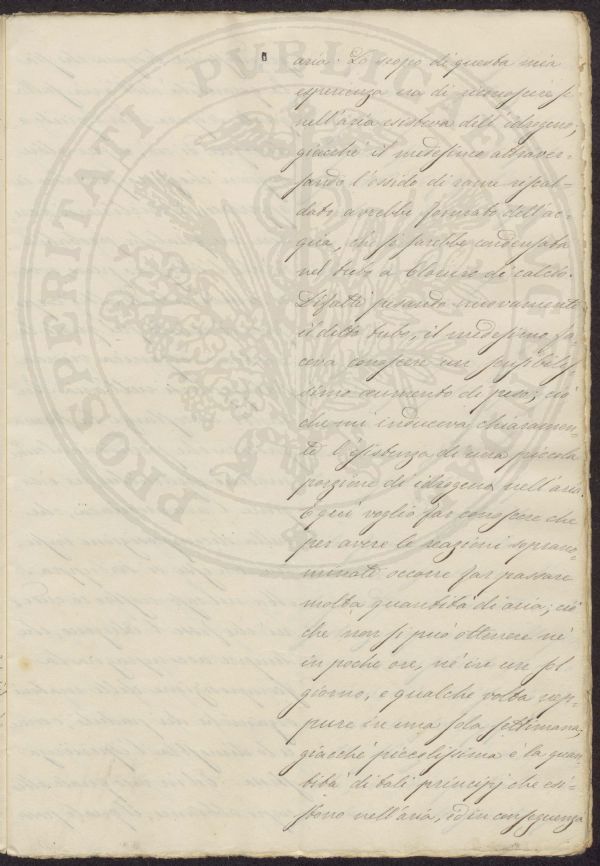 aria. Lo scopo di questa mia
esperienza era di riconoscere se
nell'aria esisteva dell'idrogeno;
giacché il medesimo attraver-
sando l'ossido di rame riscal-
dato avrebbe formato dell'ac-
qua, che si sarebbe condensata
nel tubo a Cloruro di calcio.
Difatti pesando nuovamente
il detto tubo, il medesimo fa-
ceva conoscere un sensibilis-
simo aumento di peso; ciò
che mi induceva chiaramen-
te l'esistenza di una piccola
porzione di idrogeno nell'aria.
E qui voglio far conoscere che
per avere le reazioni soprano-
minate occorre far passare
molta quantità di aria; ciò
che non si può ottenere né
in poche ore, né in un sol
giorno, e qualche volta nep-
pure in una sola settimana;
giacché piccolissima è la quan-
tità di tali principj che esi-
stono nell'aria, ed in conseguenza
PROSPERITATI PUBLICAE